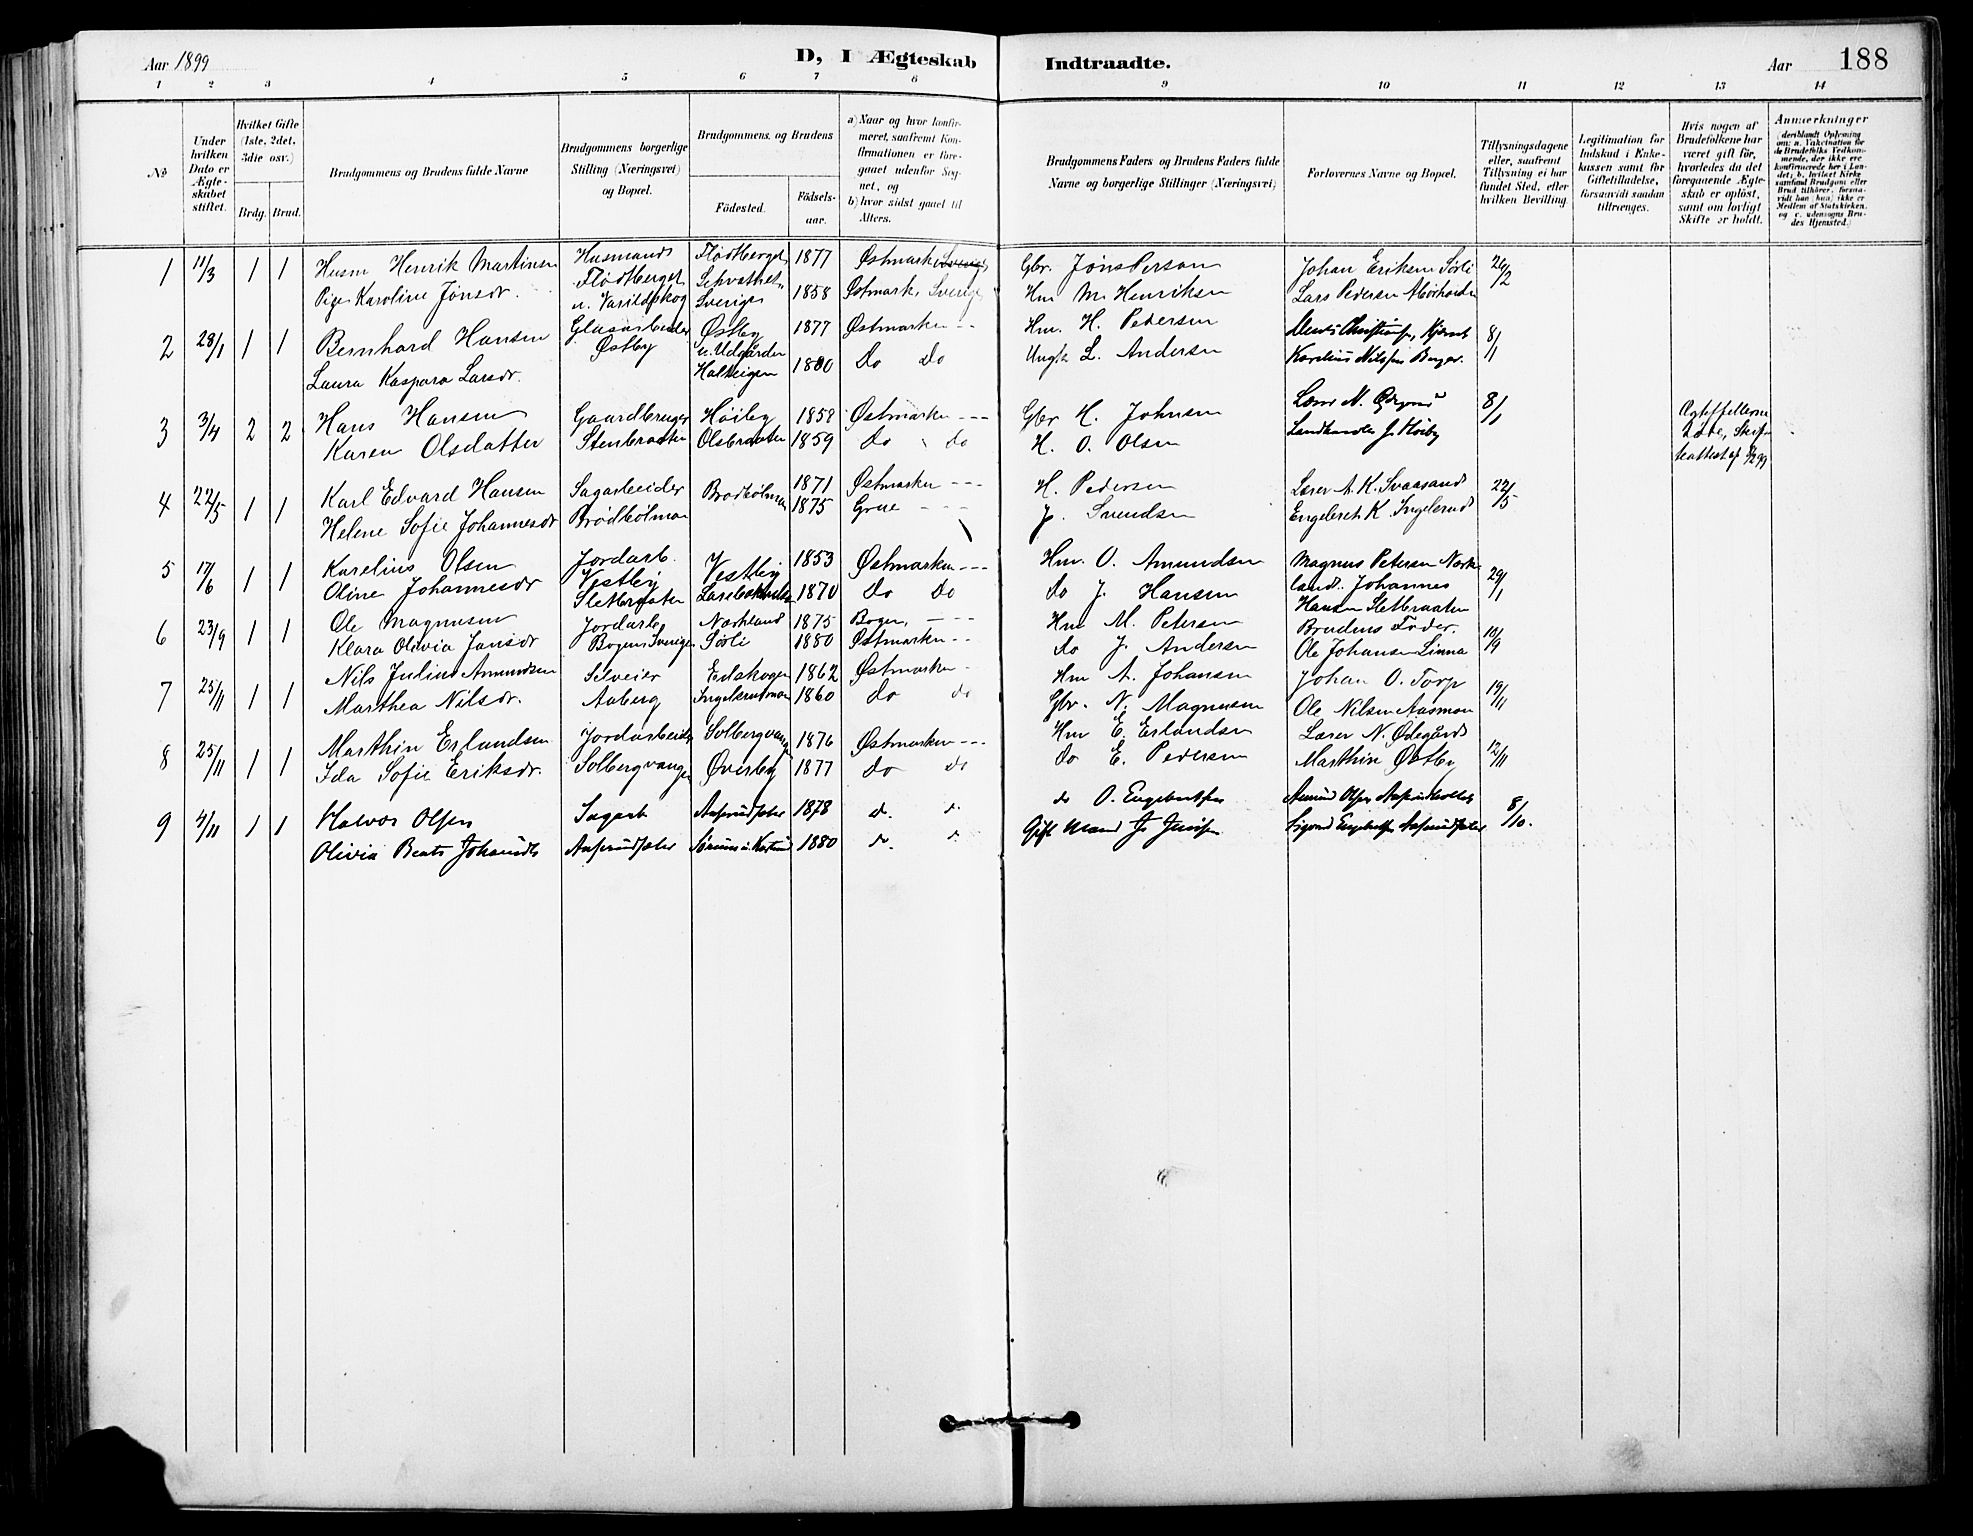 Aar 1899
D, I Ægteskab Indtraadte.
Aar 188
1 2 3 4 5 6 7 8 9 10 11 12 13 14
№
Under hvilken Dato er Ægteskabet stiftet.
Hvilket Gifte (1ste, 2det, 3die osv.)
Brdg. Brud.
Brudgommens og Brudens fulde Navne
Brudgommens borgerlige Stilling (Næringsvei) og Bopæl.
Brudgommens, og Brudens
Födested.
Födselsaar.
a) Naar og hvor konfirmeret, saafremt Konfirmationen er foregaaet udenfor Sognet, og
b) hvor sidst gaaet til Alters.
Brudgommens Faders og Brudens Faders fulde Navne og borgerlige Stillinger (Næringsvei)
Forlovernes Navne og Bopæl.
Tillysningsdagene eller, saafremt Tillysning ei har fundet Sted, efter hvilken Bevilling.
Legitimation for Indskud i Enkekassen samt for Giftetilladelse, forsaavidt saadan tiltrænges.
Hvis nogen af Brudefolkene har været gift för, hvorledes da det foregaaende Ægteskab er oplöst, samt om lovligt Skifte er holdt.
Anmærkninger
(deriblandt Oplysning om: a. Vakcination for de Brudefolks Vedkommende, der ikke ere konfirmerede her i Landet; b. hvilket Kirkesamfund Brudgom eller Brud tilhörer, forsavidt han (hun) ikke er Medlem af Statskirken, og c. udensogns Brudes Hjemsted.)
1 11/3 1 1 Husm Henrik Martinsen Husmand Flodberget 1877 Østmark Gbr. Jöns Person Johan Eriksen Sörli 26/2
Pige Karoline Jonsdr. Flodberget Sverige 1858 Østmark, Sverige Hm M. Henriksen Lars Pedersen
2 28/1 1 1 Bernhard Hansen Glasarbeider Østby 1877 Østmarken -- Hm. H. Pedersen 8/1
Laura Kaspara Larsdr. Østby 1880 Do Do Ungk L. Andersen Karelius Nilsen Berger.
3 3/4 2 2 Hans Hansen Gaardbruger Höiby 1858 Østmarken --- Gbr H. Johnsen Lærer N. 8/1 Ægtefellerne döde, Skifteattest af
Karen Olsdatter Stenbraaten Olsbraaten 1859 do do H. O. Olsen Landhandler J. Höiby
4 22/5 1 1 Karl Edvard Hansen Sagarbeider Brodbölmoen 1871 Østmarken --- H. Pedersen Lærer A. K. Svaasand 22/5
Helene Sofie Johannesdr Brödbölmoen 1875 Grue --- J. Svendsen Engebret K. Ingelsrud
5 17/6 1 1 Karelius Olsen Jordarb. Vestby 1853 Østmarken --- Hm. O. Amundsen Magnus Petersen Norkland. Johannes 29/1
Oline Johannesdr Vestby Sletbraaten 1870 Do Do do J. Hansen Hansen Sletbraaten
6 23/9 1 1 Ole Magnusen Jordarb Norkland 1875 Bogen, --- Hm M. Petersen Brudens Fader. 10/9
Klara Olivia Jansdr Bogen Sverige Sörli 1880 Østmarken -- do J. Andersen Ole Johansen Linna
7 25/11 1 1 Nils Julius Amundsen Selveier Edskogen 1862 Østmarken - Hm A. Johansen Johan O. Torp 19/11
Marthea Nilsdr. Aaberg Ingelsrudmoen 1860 do do Gbr. N. Magnusen Ole Nilsen Aasmoen
8 25/11 1 1 Marthin Erlandsen Jordarbeider Solbergvangen 1876 Østmarken --- Hm E. Erlandsen Lærer N. Ødegård 12/11
Ida Sofie Eriksdr. Solbergvangen Överby 1877 do do do E. Pedersen Marthin Østby
9 4/11 1 1 Halvor Olsen Sagarb 1878 do. do do O. Engebretsen Amund Olsen 8/10.
Olivia Beate Johansdtr 1880 do. do Gift Mand J. Jensen Sigvard Engebretsen